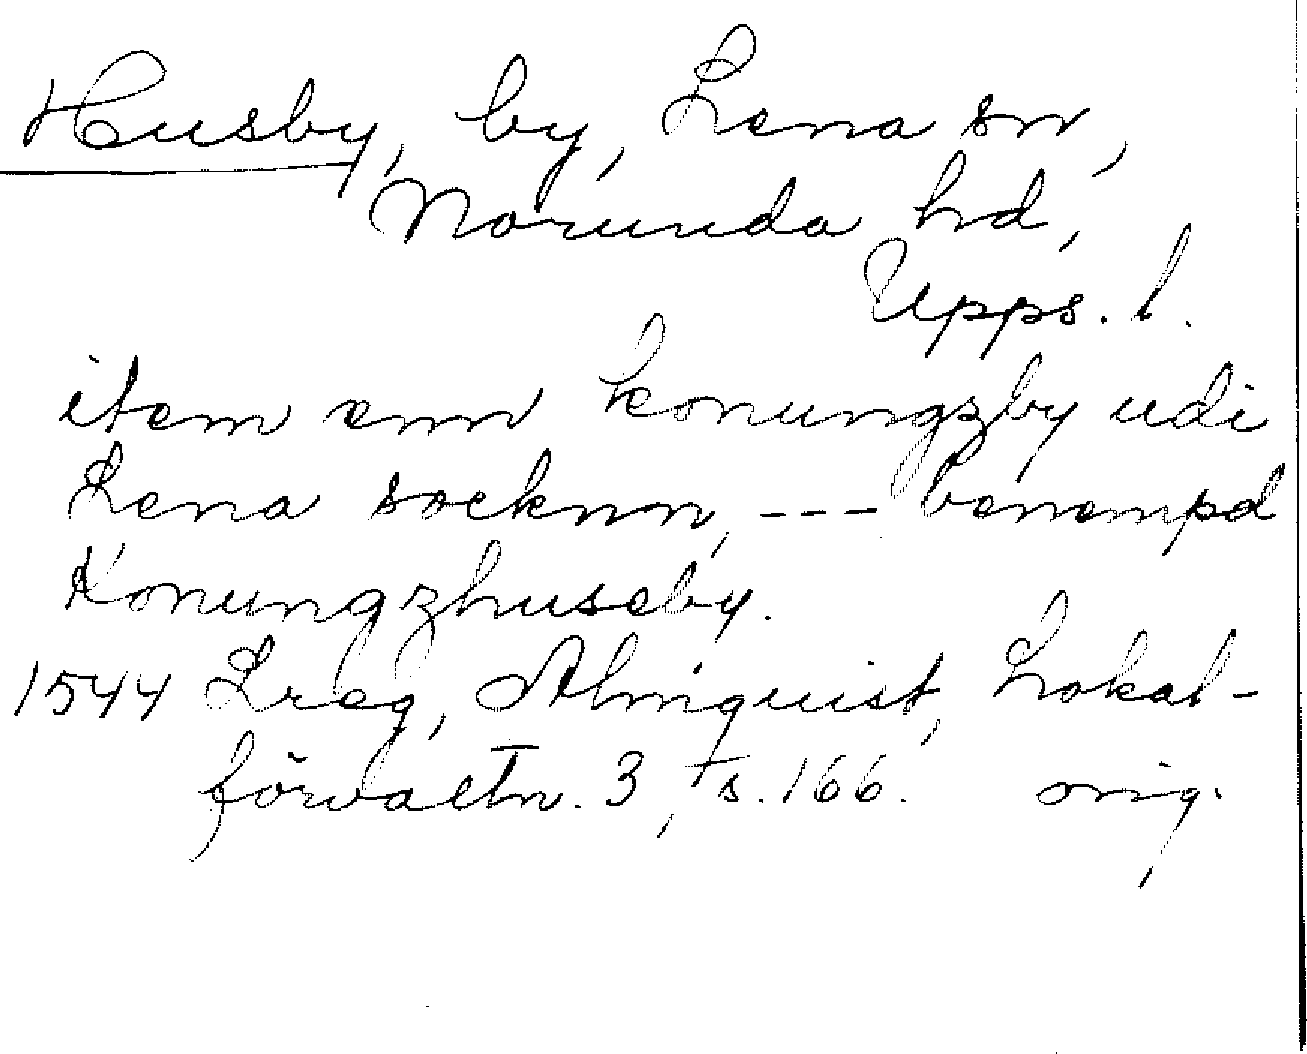 Husby, by, Lena sn,
Norunda hd,
Upps. l.
item enn konungzby udi
Lena socknn, --- benempd
Konungzhuseby.
1544 Lreg, Almquist, Lokal-
förvaltn. 3, s. 166. orig.